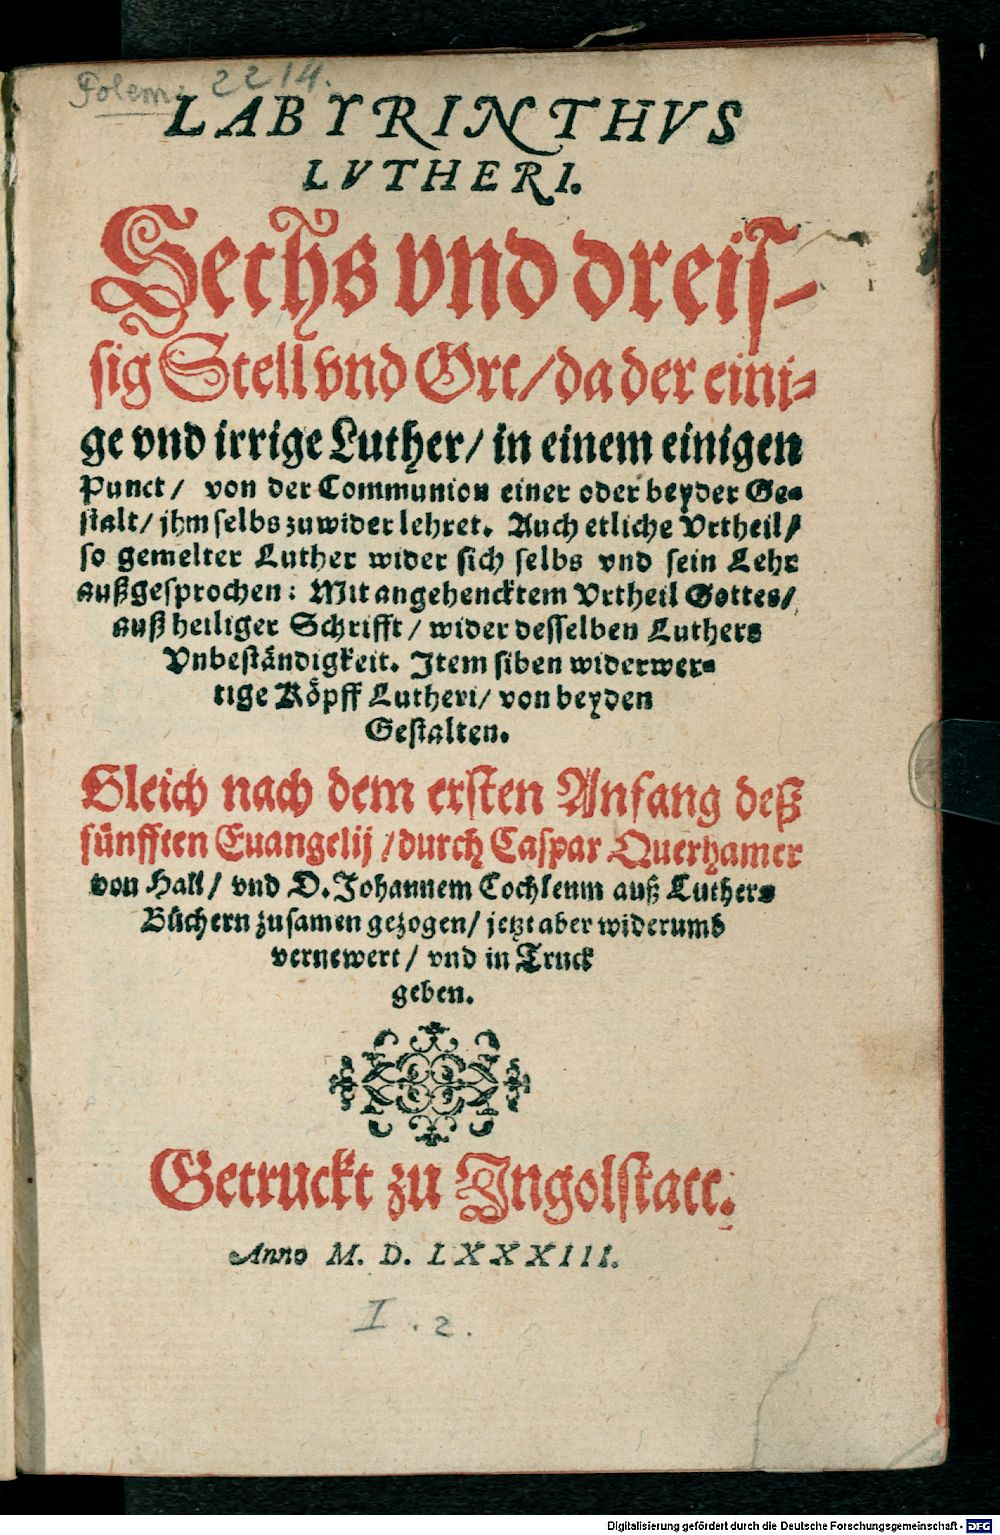 Polem. 2214.
LABYRINTHVS
LVTHERI.
Sechs vnd dreiſ-
ſig Stell vnd Ort/ da der eini-
ge vnd irrige Luther/ in einem einigen
Punct/ von der Communion einer oder beyder Ge-
ſtalt/ jhm ſelbs zuwider lehret. Auch etliche Vrtheil/
ſo gemelter Luther wider ſich ſelbs vnd ſein Lehr
außgeſprochen: Mit angehencktem Vrtheil Gottes/
auß heiliger Schrifft/ wider deſſelben Luthers
Vnbeſtändigkeit. Item ſiben widerwer-
tige Köpff Lutheri/ von beyden
Geſtalten.
Gleich nach dem erſten Anfang deß
fünfften Euangelij/ durch Caſpar Querhamer
von Hall/ vnd D. Johannem Cochleum auß Luthers
Büchern zuſamen gezogen/ jetzt aber widerumb
vernewert/ vnd in Truck
geben.
Getruckt zu Ingolſtatt.
Anno M. D. LXXXIII.
I. 2.
Digitalisierung gefördert durch die Deutsche Forschungsgemeinschaft - DFG